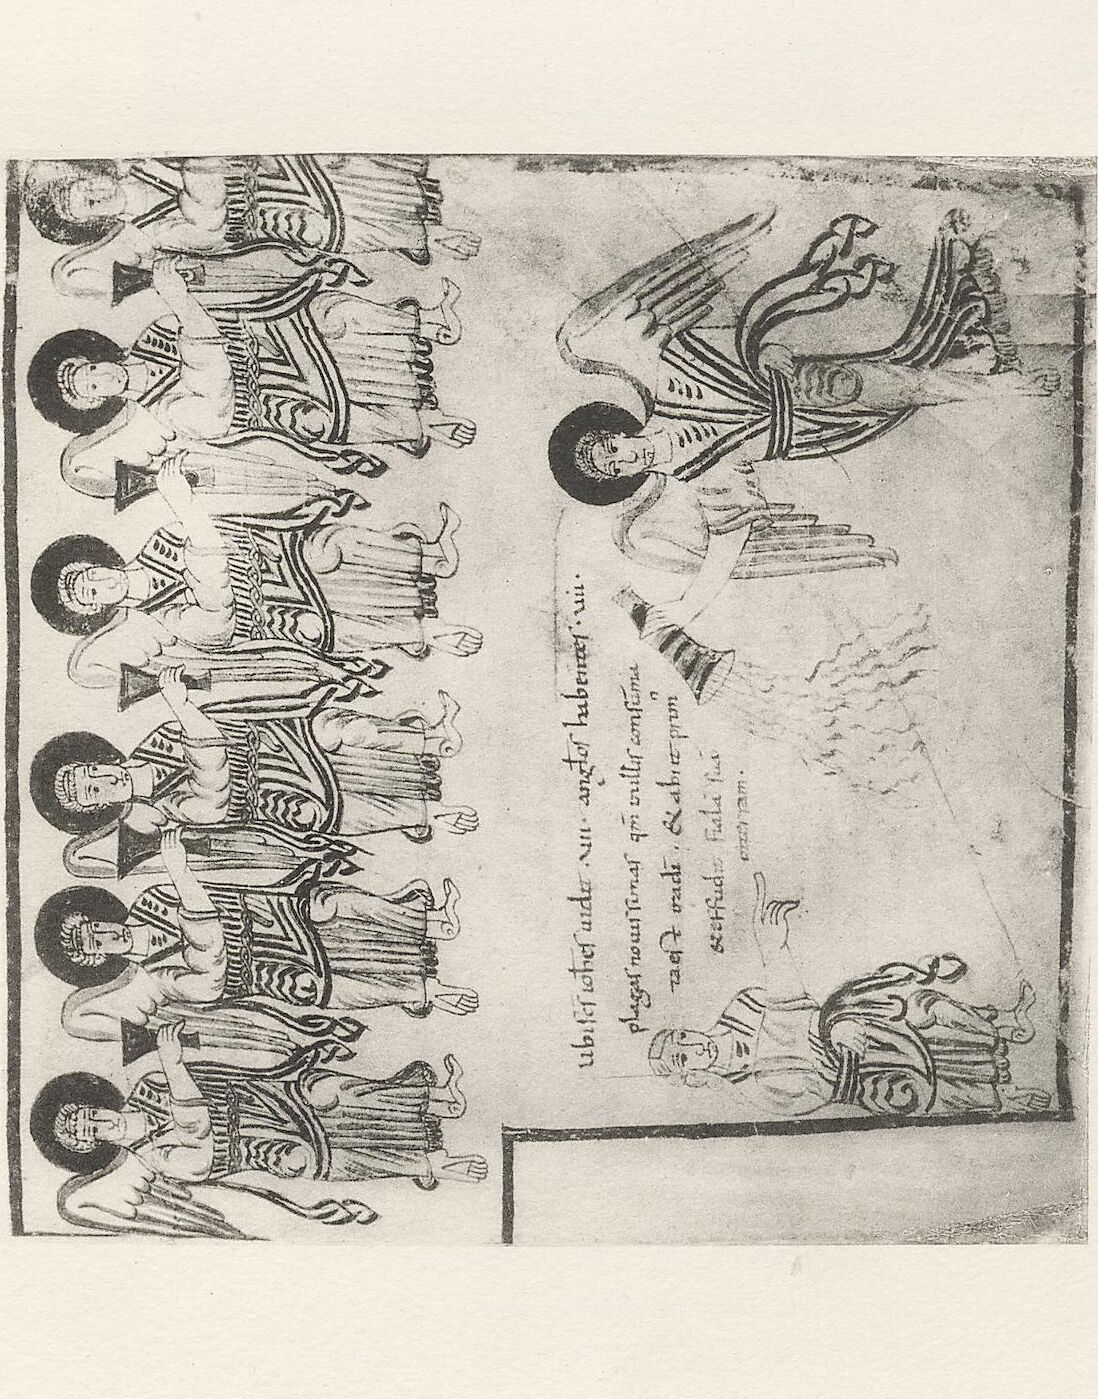 ubi sc̅s ioh̅es uidet · vii · angelos habentes · vii ·
plagas nouissimas qm̅ in illis consum̅a
ta est ira di̅ · & abiit prim
& effudit fiala sua
in terram ·